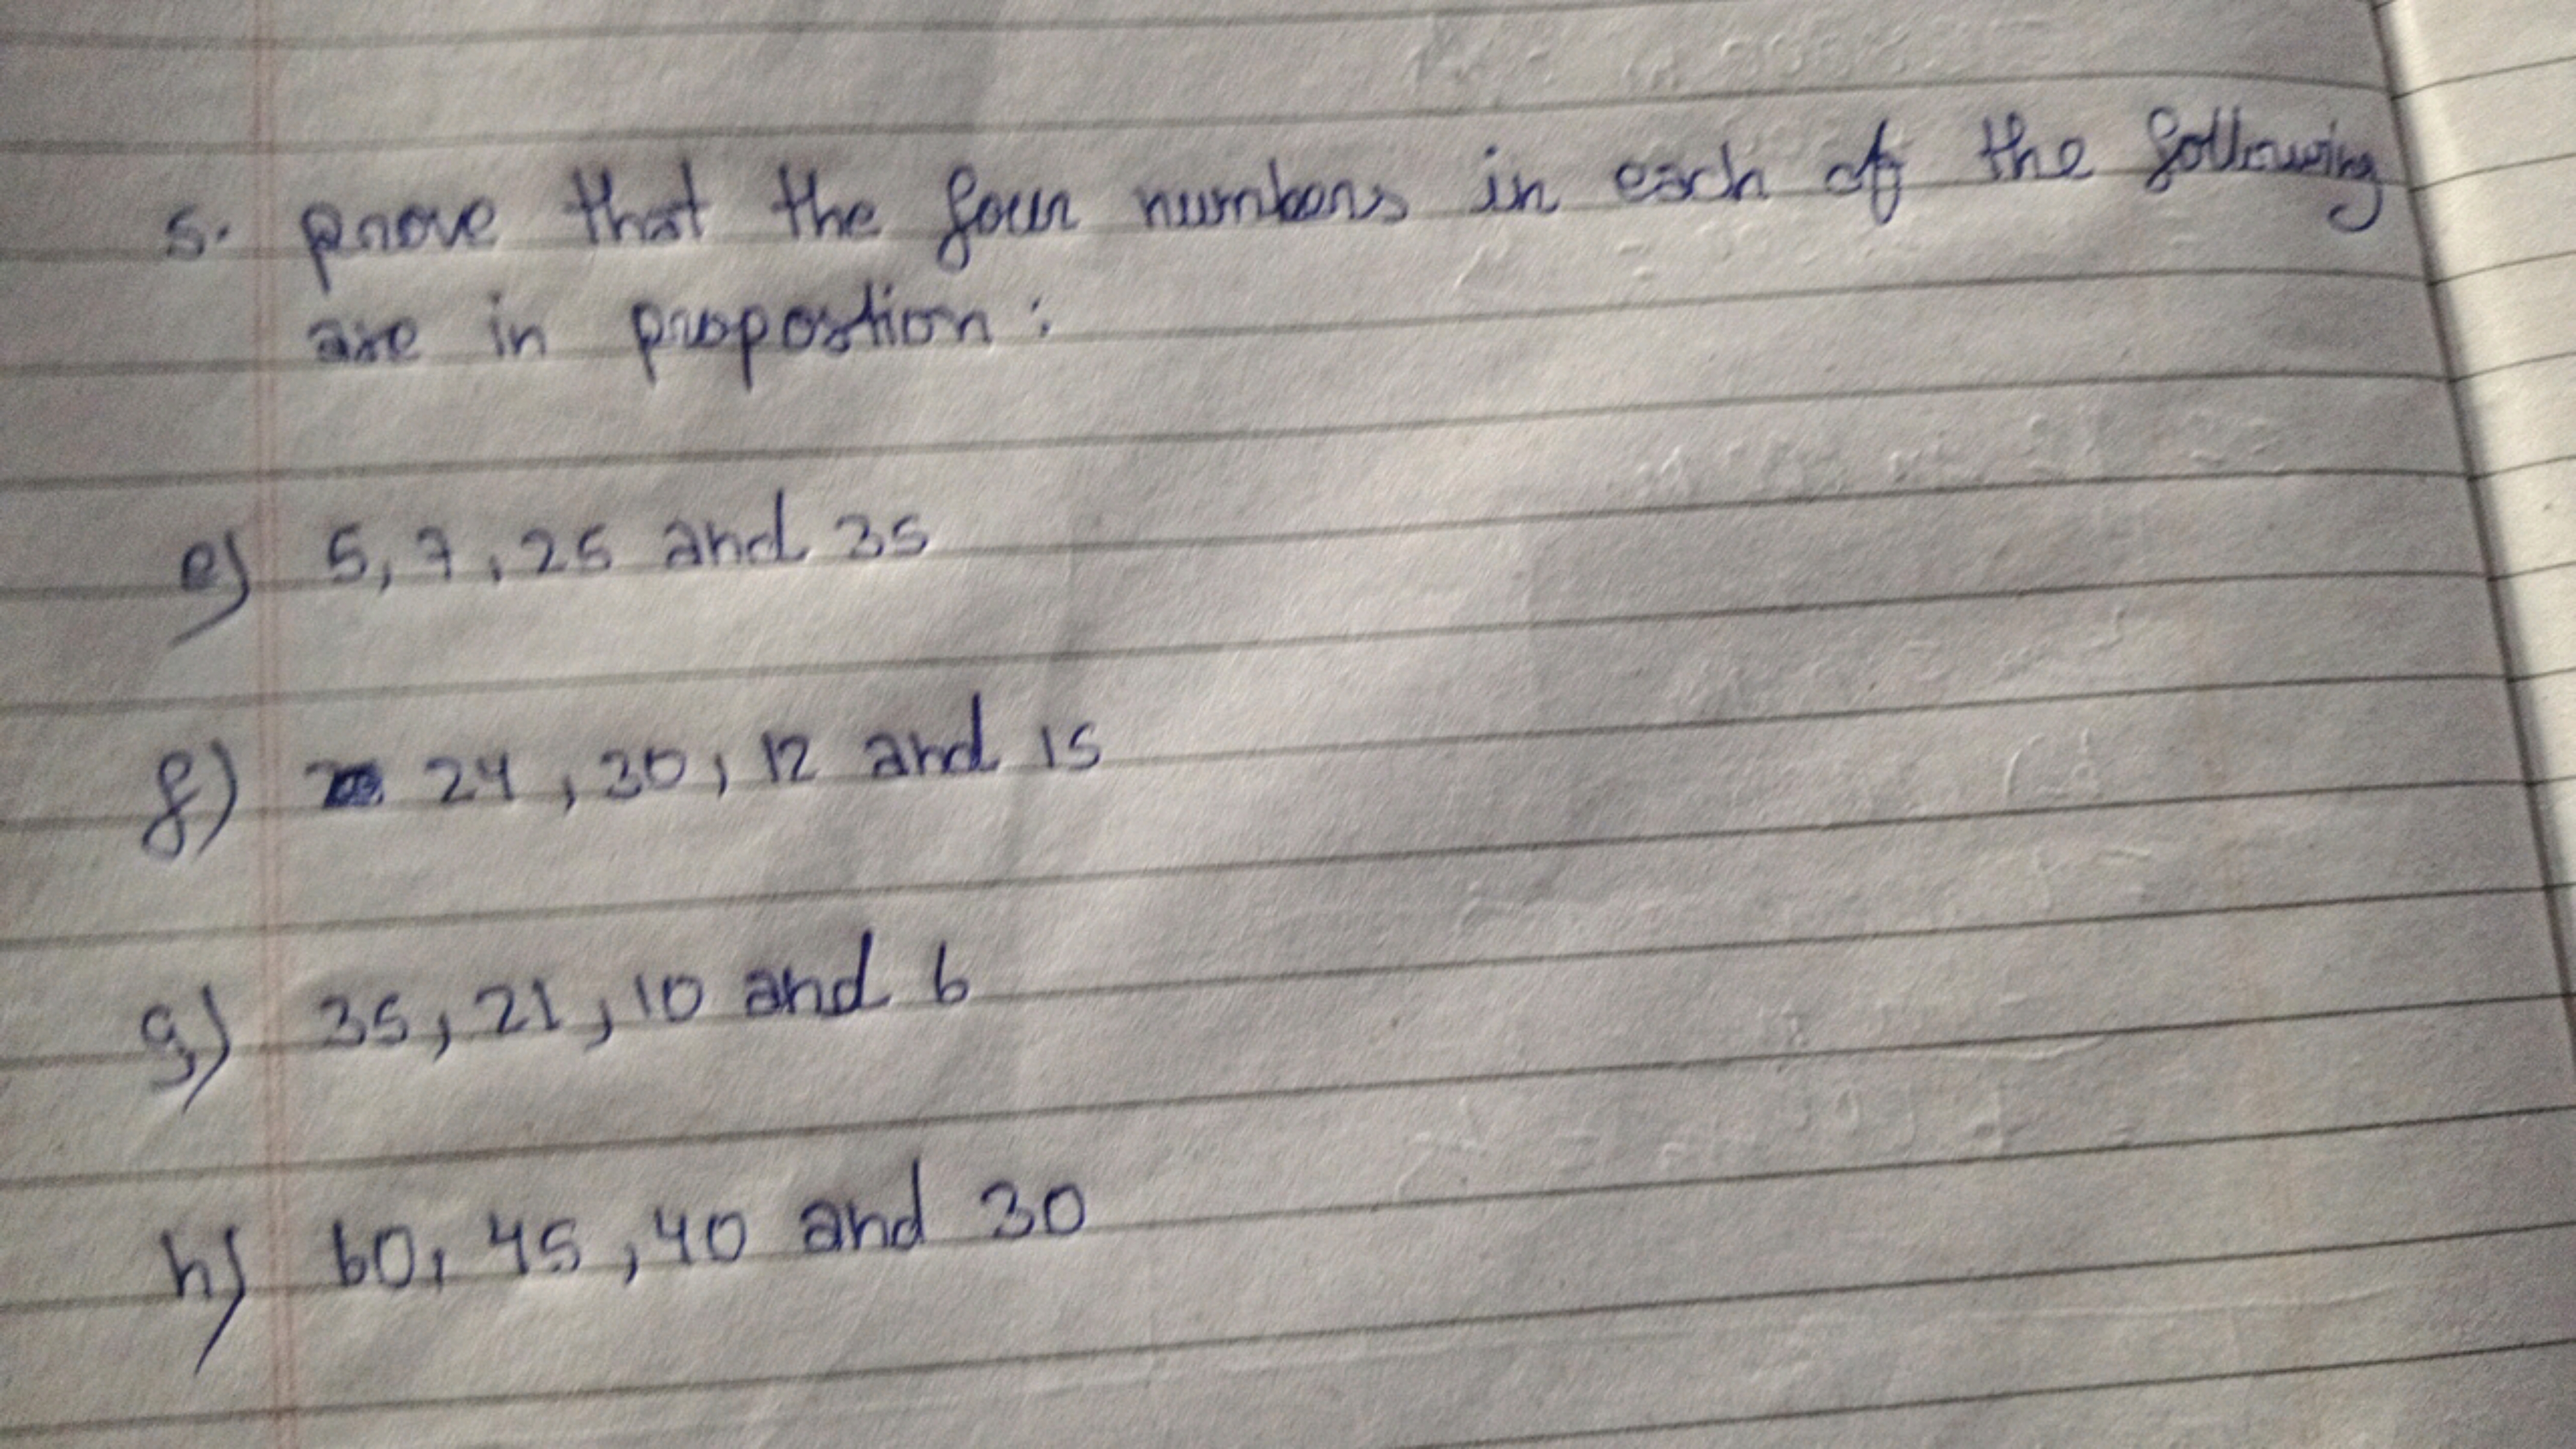 5. prove that the four numbers in each of the following
are in proportion :
e) 5, 7, 25 and 35
f) 24, 30, 12 and 15
g) 35, 21, 10 and 6
h) 60, 45, 40 and 30